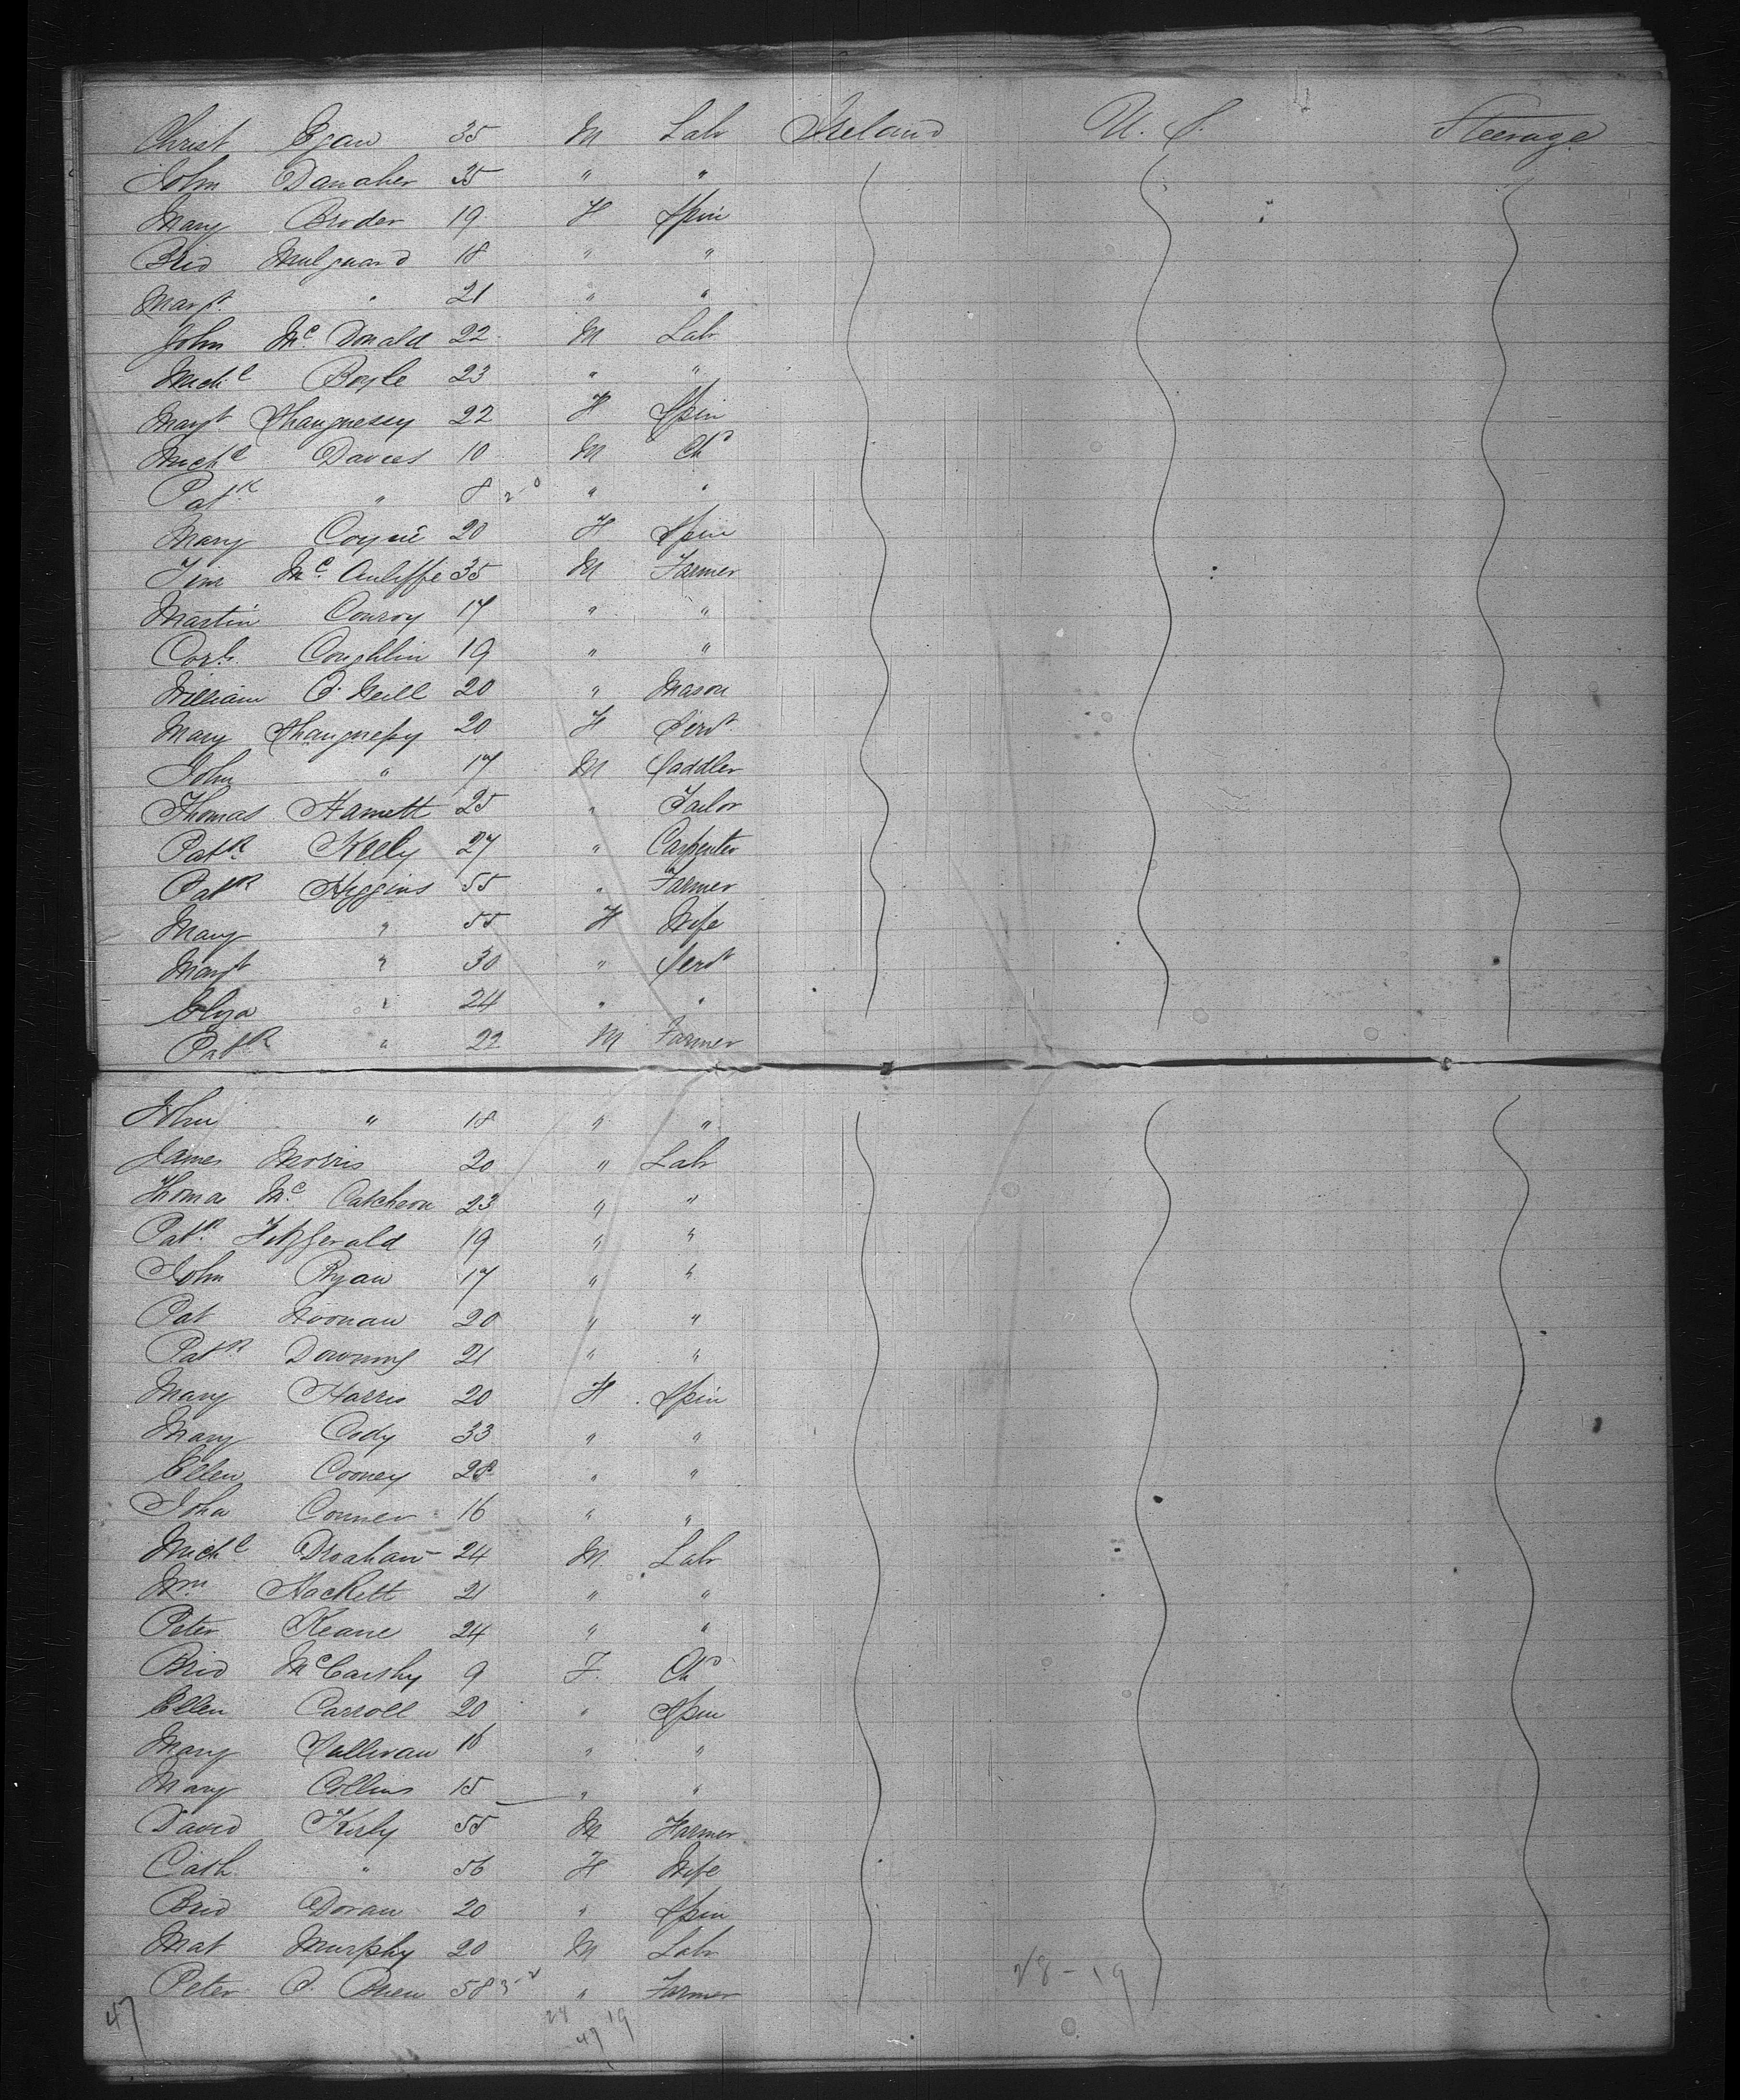 Christ Egan 35 M Labr Ireland U. S. Steerage
John Danaher 35 " "
Mary Broder 19 F Spin
Brid Mulguard 18 " "
Margt. " 21 " "
John Mc. Donald 22 M Labr
Michl Boyle 23 " "
Margt. Shaugnessy 22 F Spin
Michl Davies 10 M Chd
Patk " 8 " "
Mary Coyne 20 F Spin
Tim Mc. Auliffe 35 M Farmer
Martin Conroy 17 " "
Corls. Coughlin 19 " "
William O. Neill 20 " Mason
Mary Shaugnessy 20 F Servt.
John " 17 M Saddler
Thomas Harnett 25 " Tailor
Patk. Kelly 27 " Carpenter
Patk Higgins 55 " Farmer
Mary " 55 F Wife
Margt " 30 " Servt
Eliza " 24 " "
Patk " 22 M Farmer
John " 18 " "
James Morris 20 " Labr
Thomas Mc. Catcheon 23 " "
Patk. Fitzgerald 19 " "
John Ryan 17 " "
Pat Noonan 20 " "
Patk. Downing 21 " "
Mary Harris 20 F Spin
Mary Cody 33 " "
Ellen Cooney 28 " "
Joha Conner 16 " "
Michl. Droahan 24 M Labr
Wm Hackett 21 " "
Peter Keane 24 " "
Brid McCarthy 9 F. Chd
Ellen Carroll 20 " Spin
Mary Sullivan 16 " "
Mary Collins 15 " "
David Kirby 55 M Farmer
Cath " 56 F Wife
Brid Doran 20 " Spin
Mat Murphy 20 M Labr
Peter O. Brien 58 " Farmer
28-19
47 28 19
47